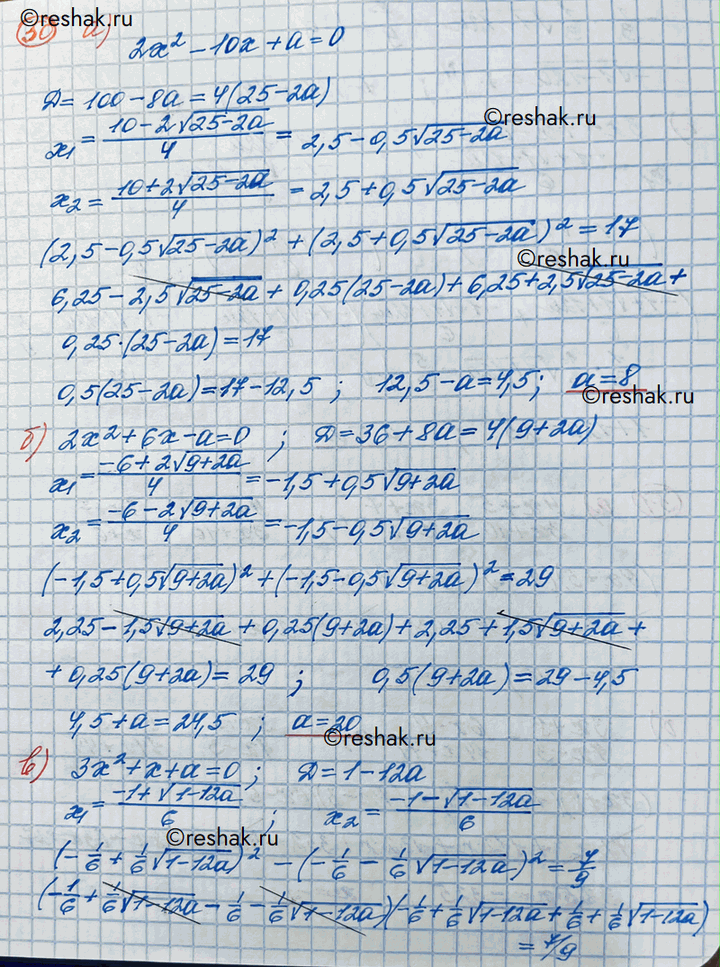 ©reshak.ru
30 а) 2x² − 10x + a = 0
Д = 100 − 8a = 4(25 − 2a) ©reshak.ru
x₁ = (10 − 2√(25−2a))/4 = 2,5 − 0,5√(25−2a)
x₂ = (10 + 2√(25−2a))/4 = 2,5 + 0,5√(25−2a)
(2,5 − 0,5√(25−2a))² + (2,5 + 0,5√(25−2a))² = 17
©reshak.ru
6,25 − 2,5√(25−2a) + 0,25(25−2a) + 6,25 + 2,5√(25−2a) +
0,25·(25−2a) = 17
0,5(25−2a) = 17 − 12,5 ; 12,5 − a = 4,5 ; a = 8
©reshak.ru
б) 2x² + 6x − a = 0 ; Д = 36 + 8a = 4(9+2a)
x₁ = (−6 + 2√(9+2a))/4 = −1,5 + 0,5√(9+2a)
x₂ = (−6 − 2√(9+2a))/4 = −1,5 − 0,5√(9+2a)
(−1,5 + 0,5√(9+2a))² + (−1,5 − 0,5√(9+2a))² = 29
2,25 − 1,5√(9+2a) + 0,25(9+2a) + 2,25 + 1,5√(9+2a) +
+ 0,25(9+2a) = 29 ; 0,5(9+2a) = 29 − 4,5
4,5 + a = 24,5 ; a = 20
©reshak.ru
в) 3x² + x + a = 0 ; Д = 1 − 12a
x₁ = (−1 + √(1−12a))/6 ; x₂ = (−1 − √(1−12a))/6
©reshak.ru
(−1/6 + 1/6√(1−12a))² − (−1/6 − 1/6√(1−12a))² = 7/9
(−1/6 + 1/6√(1−12a) − 1/6 − 1/6√(1−12a))(−1/6 + 1/6√(1−12a) + 1/6 + 1/6√(1−12a))
= 7/9